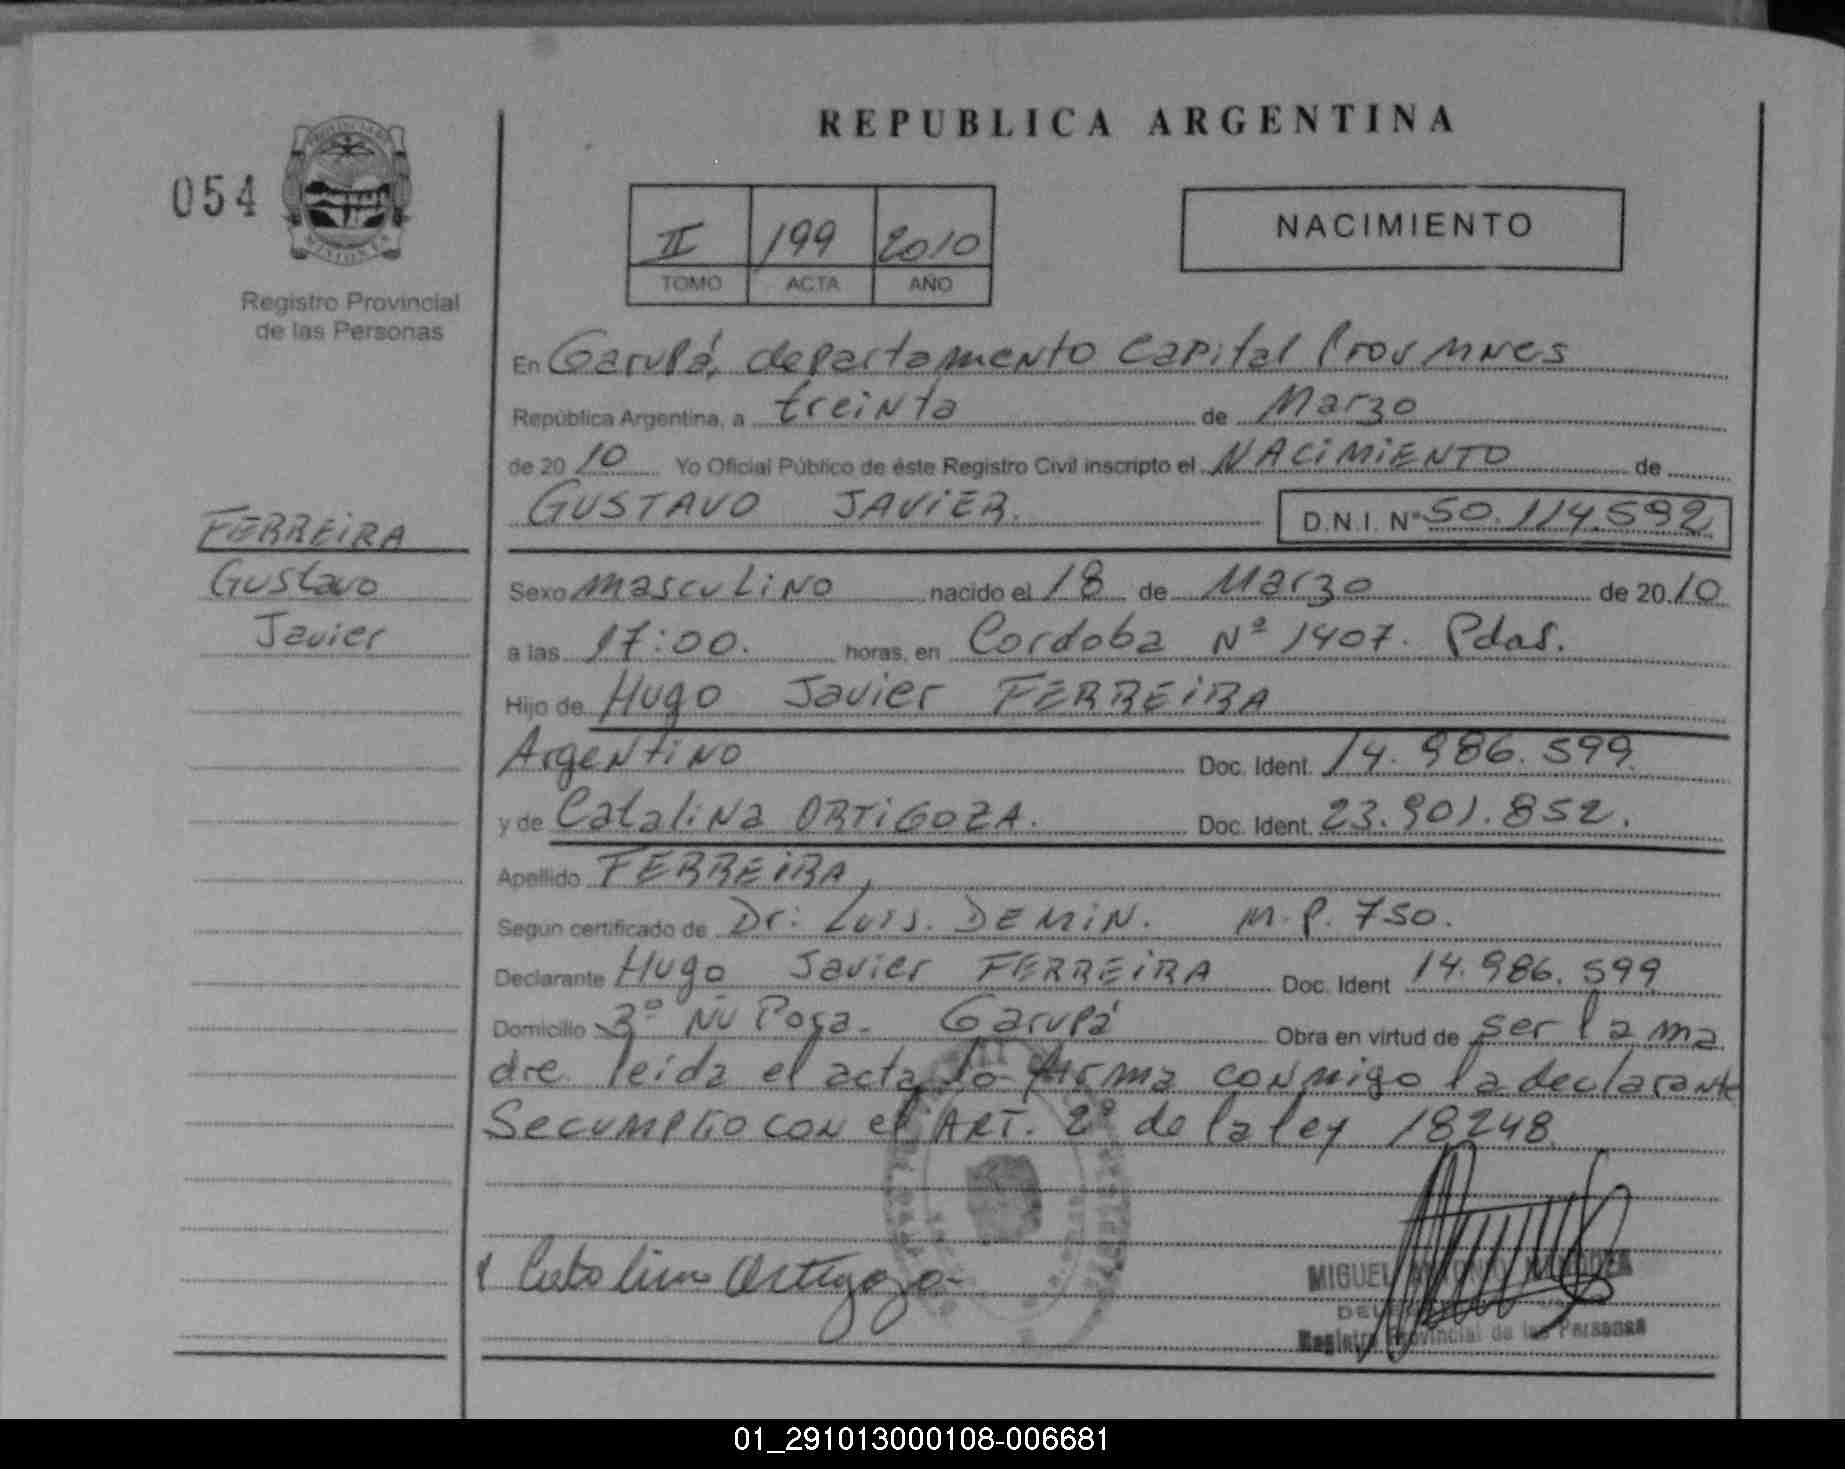 REPUBLICA ARGENTINA
054
PROVINCIA DE MISIONES
Registro Provincial
de las Personas
II 199 2010
TOMO ACTA AÑO
NACIMIENTO
En Garupá, departamento Capital Prov Mnes
República Argentina, a treinta de Marzo
de 2010 Yo Oficial Público de éste Registro Civil inscripto el NACIMIENTO de
GUSTAVO JAVIER. D.N.I. Nº 50.114.592
FERREIRA
Gustavo
Javier
Sexo masculino nacido el 18 de Marzo de 20.10
a las 17:00. horas, en Cordoba Nº 1407. Pdas.
Hijo de Hugo Javier FERREIRA
Argentino Doc. Ident. 14.986.599
y de Catalina ORTIGOZA. Doc. Ident. 23.901.852.
Apellido FERREIRA,
Según certificado de Dr: Luis. DEMIN. M.P. 750.
Declarante Hugo Javier FERREIRA Doc. Ident 14.986.599
Domicilio Bº Ñu Pora. Garupá Obra en virtud de ser la ma
dre leida el acta lo firma conmigo la declarante
Se cumplio con el ART. 2º de la ley 18248
Catalina Ortigoza
MIGUEL ANTONIO
Registro Provincial de las Personas
01_291013000108-006681